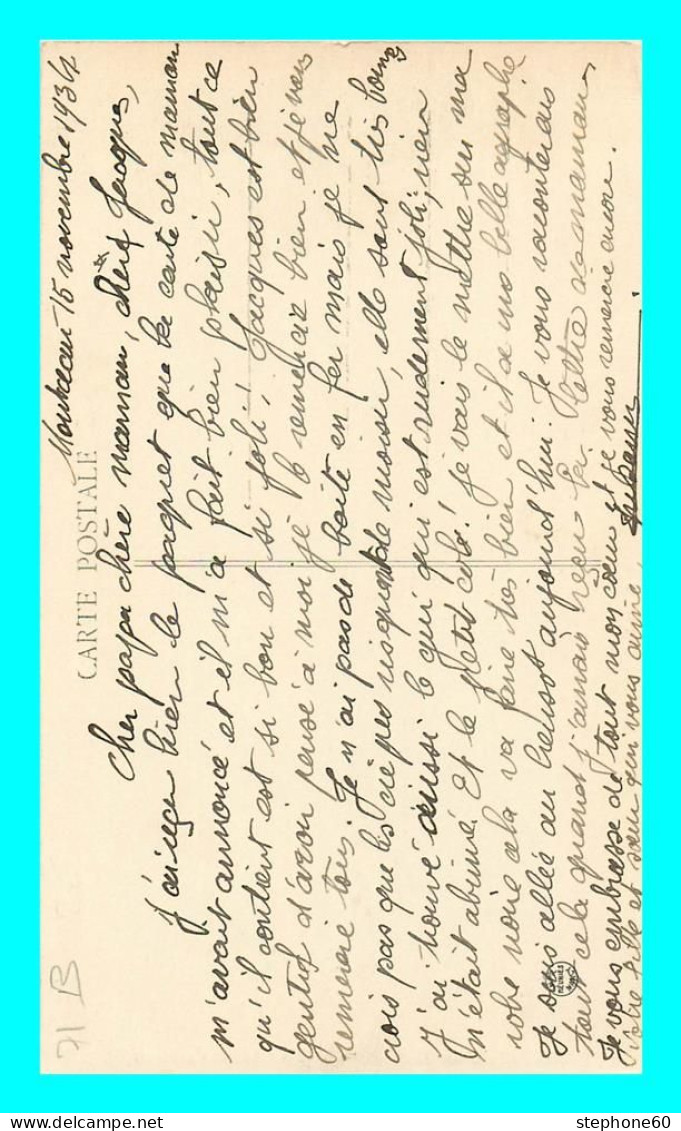 CARTE POSTALE
Montceau 15 novembre 1934
Cher papa chère maman, chère Jacques,
J'ai reçu hier le paquet que ta carte de maman
m'avait annoncé et il m'a fait bien plaisir, tout ce
qu'il contient est si bon et si joli! Jacques est bien
gentil d'avoir pensé à moi je le remercie bien et je vous
remercie tous. Je n'ai pas de boite en fer mais je ne
crois pas que les crêpes risquent de moisir, elle sont très bonnes
J'ai trouvé aussi le qui qui est rudement joli, rien
n'était abimé. Et le petit col! je vais le mettre sur ma
robe noire cela va faire très bien et il a ma belle agraphe
Je suis allée au Creusot aujourd'hui. Je vous raconterais
tout cela quand j'aurais reçu la lettre de maman.
Je vous embrasse de tout mon cœur et je vous remercie encor.
Votre fille et sœur qui vous aime,
71 B
RÉUNIES
stephone60